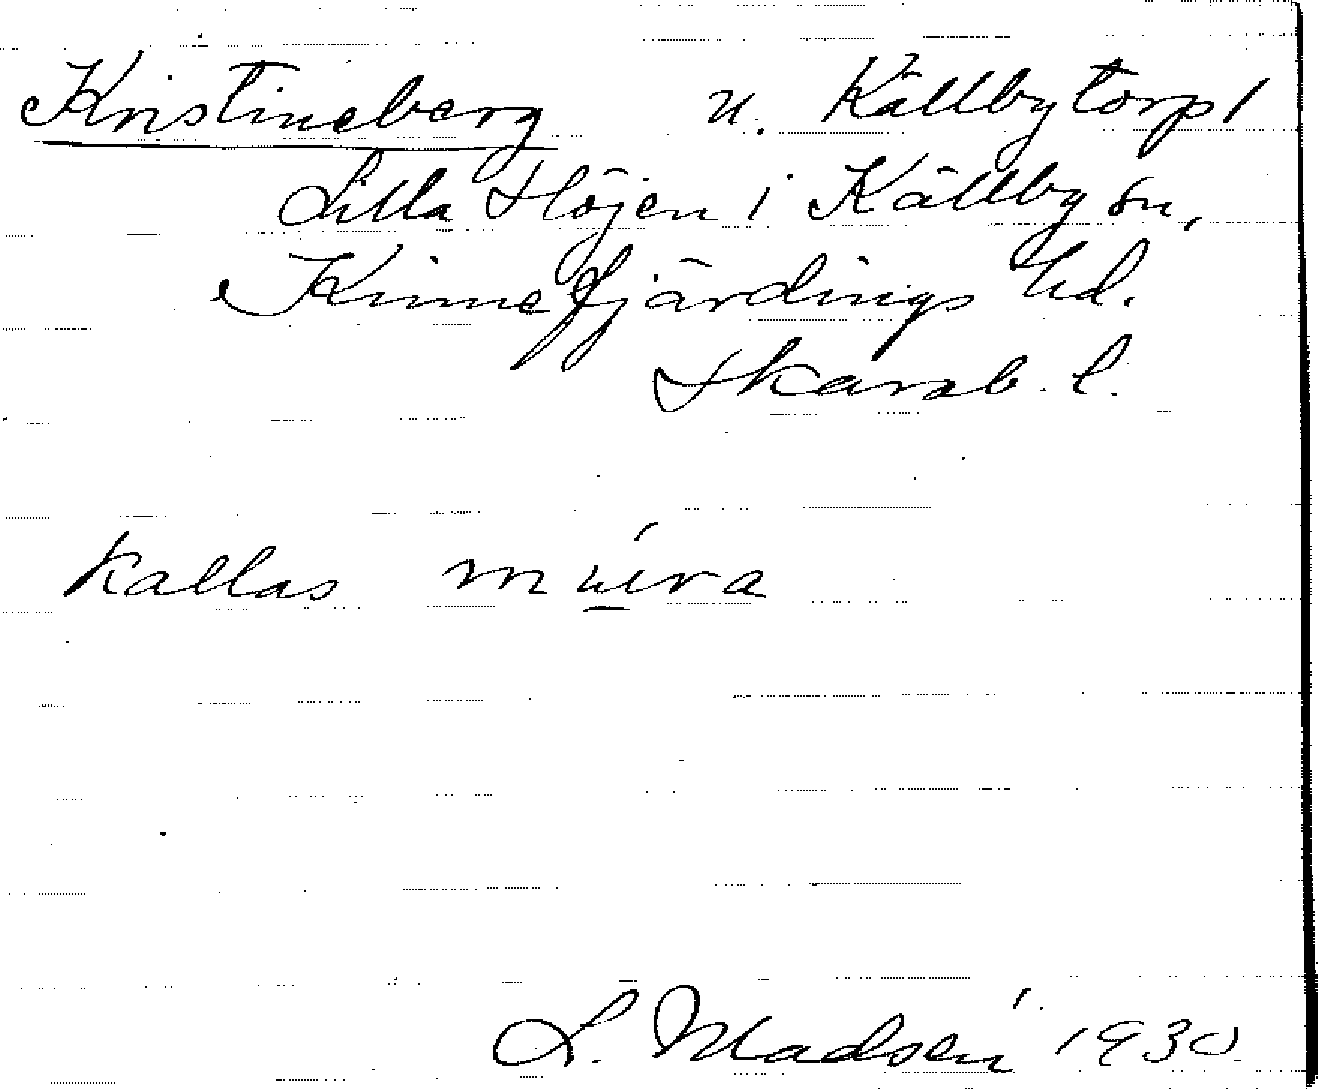 Kristineberg u. Källbytorp/
Lilla Höjen i Källby sn,
Kinnefjärdings hd.
Skarab. l.
kallas
L. Madsén 1930